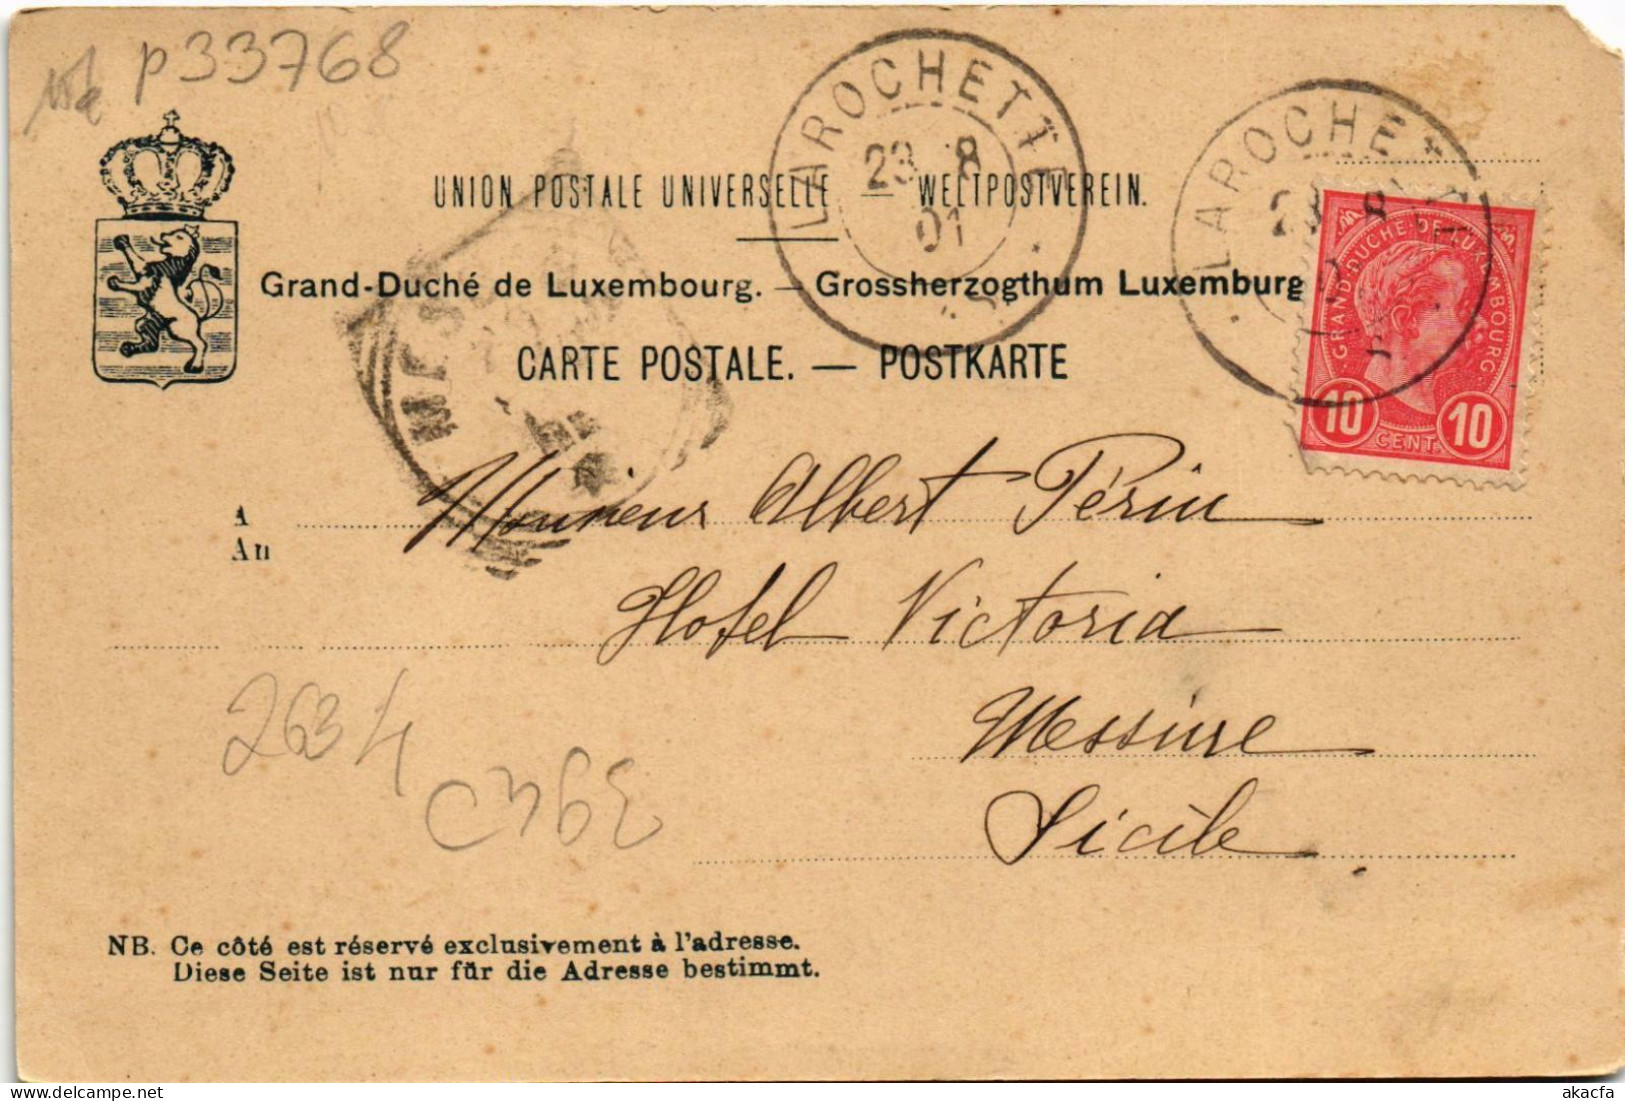 p33768
LAROCHETTE
23 8
01
LAROCHETTE
23 8
UNION POSTALE UNIVERSELLE — WELTPOSTVEREIN.
Grand-Duché de Luxembourg. — Grossherzogthum Luxemburg
CARTE POSTALE. — POSTKARTE
GRAND-DUCHÉ-DE-LUXEMBOURG.
10 CENT. 10
A Monsieur Albert Périn
An
Hotel Victoria
Messine
Sicile
2634
NB. Ce côté est réservé exclusivement à l'adresse.
Diese Seite ist nur für die Adresse bestimmt.
akacfa